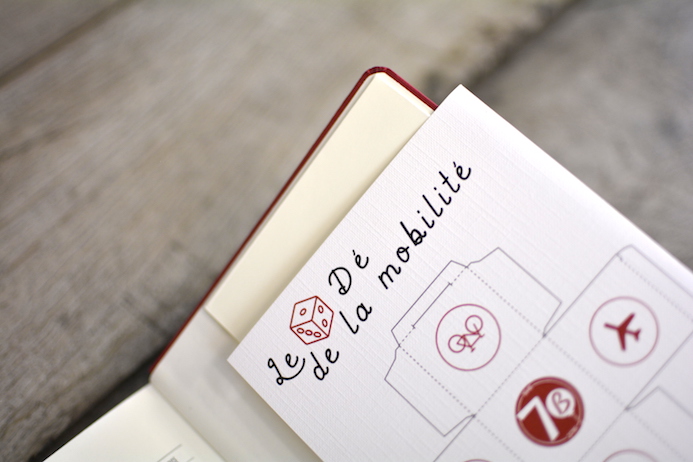 Le Dé
de la mobilité
7B